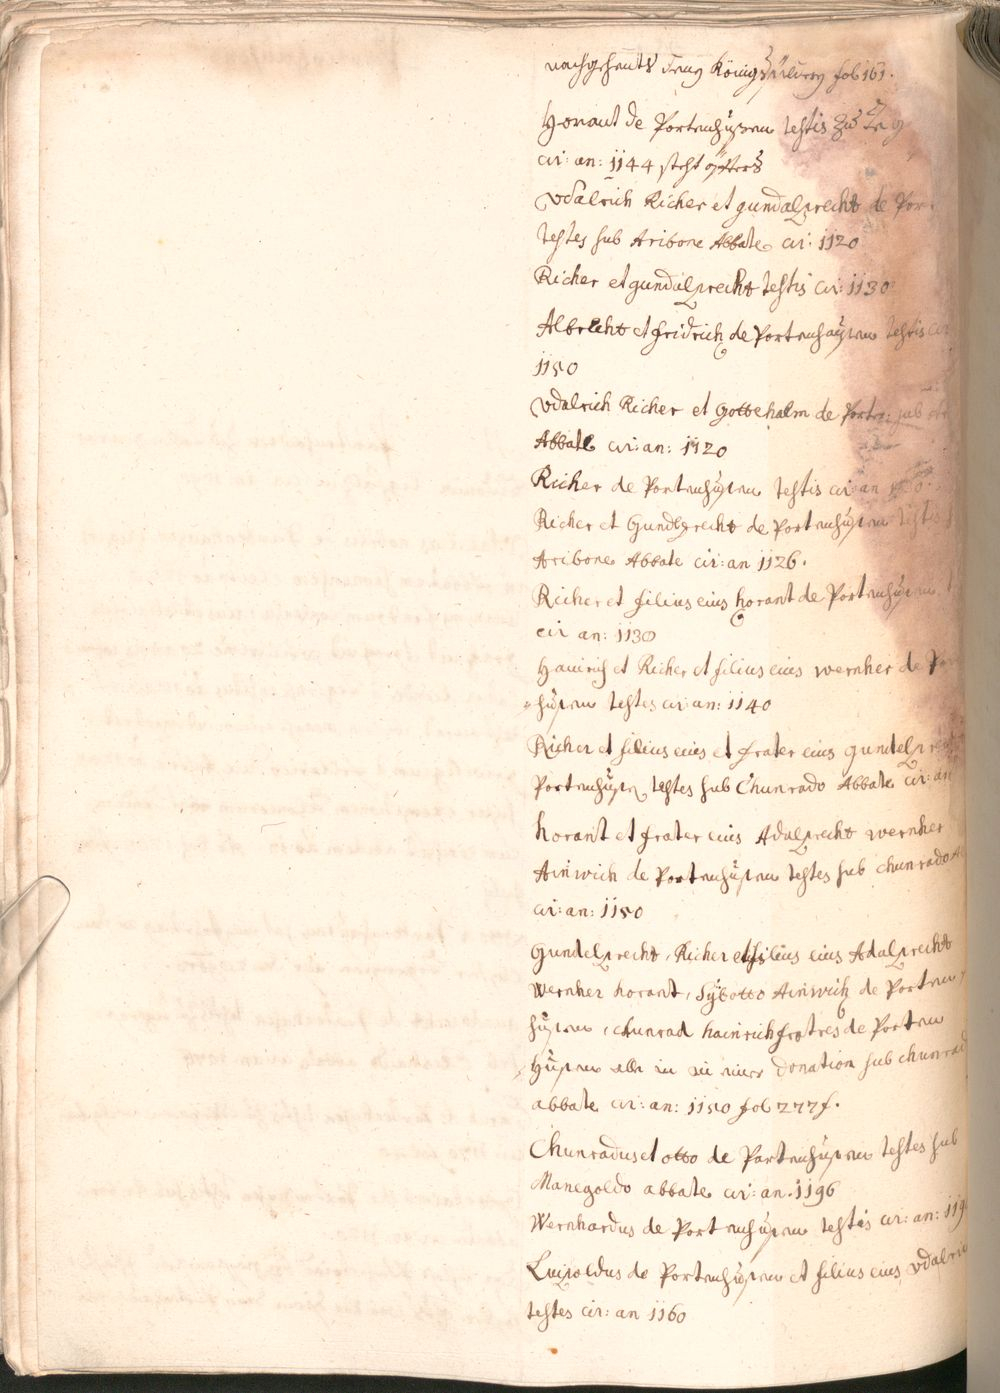 nachgehents Jeny König fol 161.
Horant de Portenhusen testis zu
cir: an: 1144 steht öffters
Udalrich Richer et gundalprecht de Por
testes sub Aribone Abbate cir: 1120
Richer et gundalprecht testis cir: 1130
Albrecht et fridrich de Portenhausen testis cir
1150
Udalrich Richer et Gottehalm de Porten: sub
Abbate cir: an: 1120
Richer de Portenhusen testis cir an
Richer et Gundlprecht de Portenhusen testis
Aribone Abbate cir: an 1126.
Richer et filius eius horant de Portenhusen
cir an: 1130
Hainrich et Richer et filius eius wernher de Por
husen testes cir: an: 1140
Richer et filius eius et frater eius gundelpr
Portenhusen testes sub Chunrado Abbate cir: an
horant et frater eius Adalprecht wernher
Ainwich de Portenhusen testes sub chunrado
cir: an: 1150
Gundelprecht, Richer et filius eius Adalprecht
Wernher horant, Sybotto Ainwich de Porten
husen, chunrad hainrich fratres de Porten
husen alle in einer donation sub chunrad
abbate cir: an: 1150 fol 277f.
Chunradus et otto de Partenhusen testes sub
Manegoldo abbate cir: an. 1196
Wernhardus de Portenhusen testis cir: an: 119
Luipoldus de Portenhusen et filius eius Udalric
testes cir: an 1160